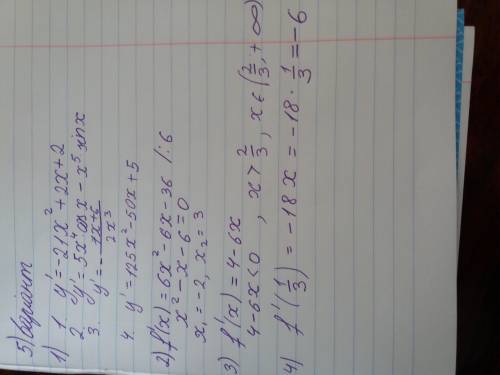 5) варіант
1) 1. y' = -21x² + 2x + 2
2. y' = 5x⁴ cos x - x⁵ sin x
3. y' = - x+6 / 2x³
4. y' = 125x² - 50x + 5
2) f'(x) = 6x² - 6x - 36 /:6
x² - x - 6 = 0
x₁ = -2, x₂ = 3
3) f'(x) = 4 - 6x
4 - 6x < 0, x > 2/3, x ∈ (2/3, +∞)
4) f'(1/3) = -18x = -18 · 1/3 = -6